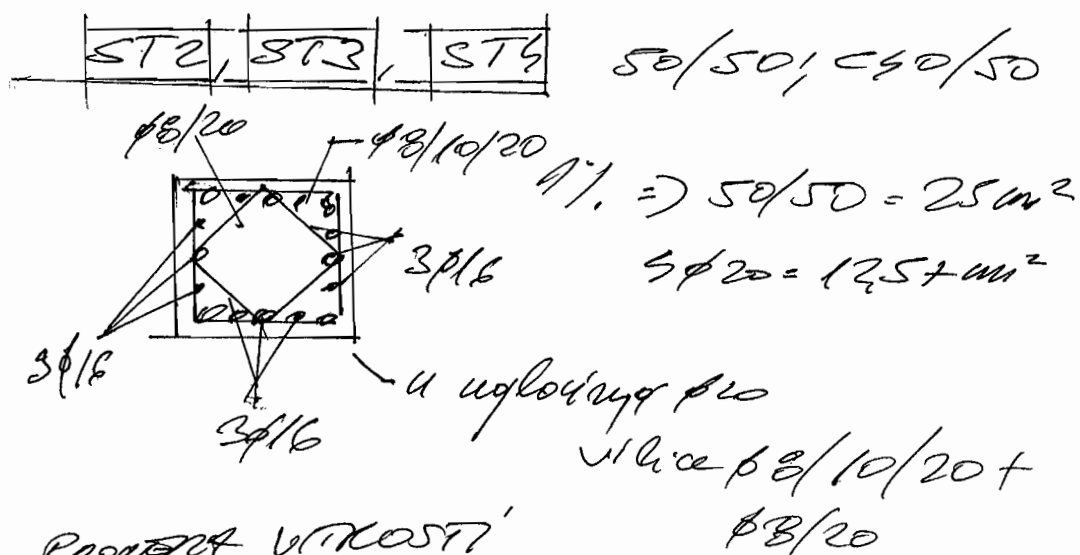 ST2, ST3, ST4 50/50; C40/50
φ8/20 φ8/10/20
1% => 50/50 = 25cm²
3φ16 4φ20 = 12,57cm²
3φ16
3φ16
u uglovima φ20
vilice φ8/10/20 +
φ8/20
PROVJERA VITKOSTI